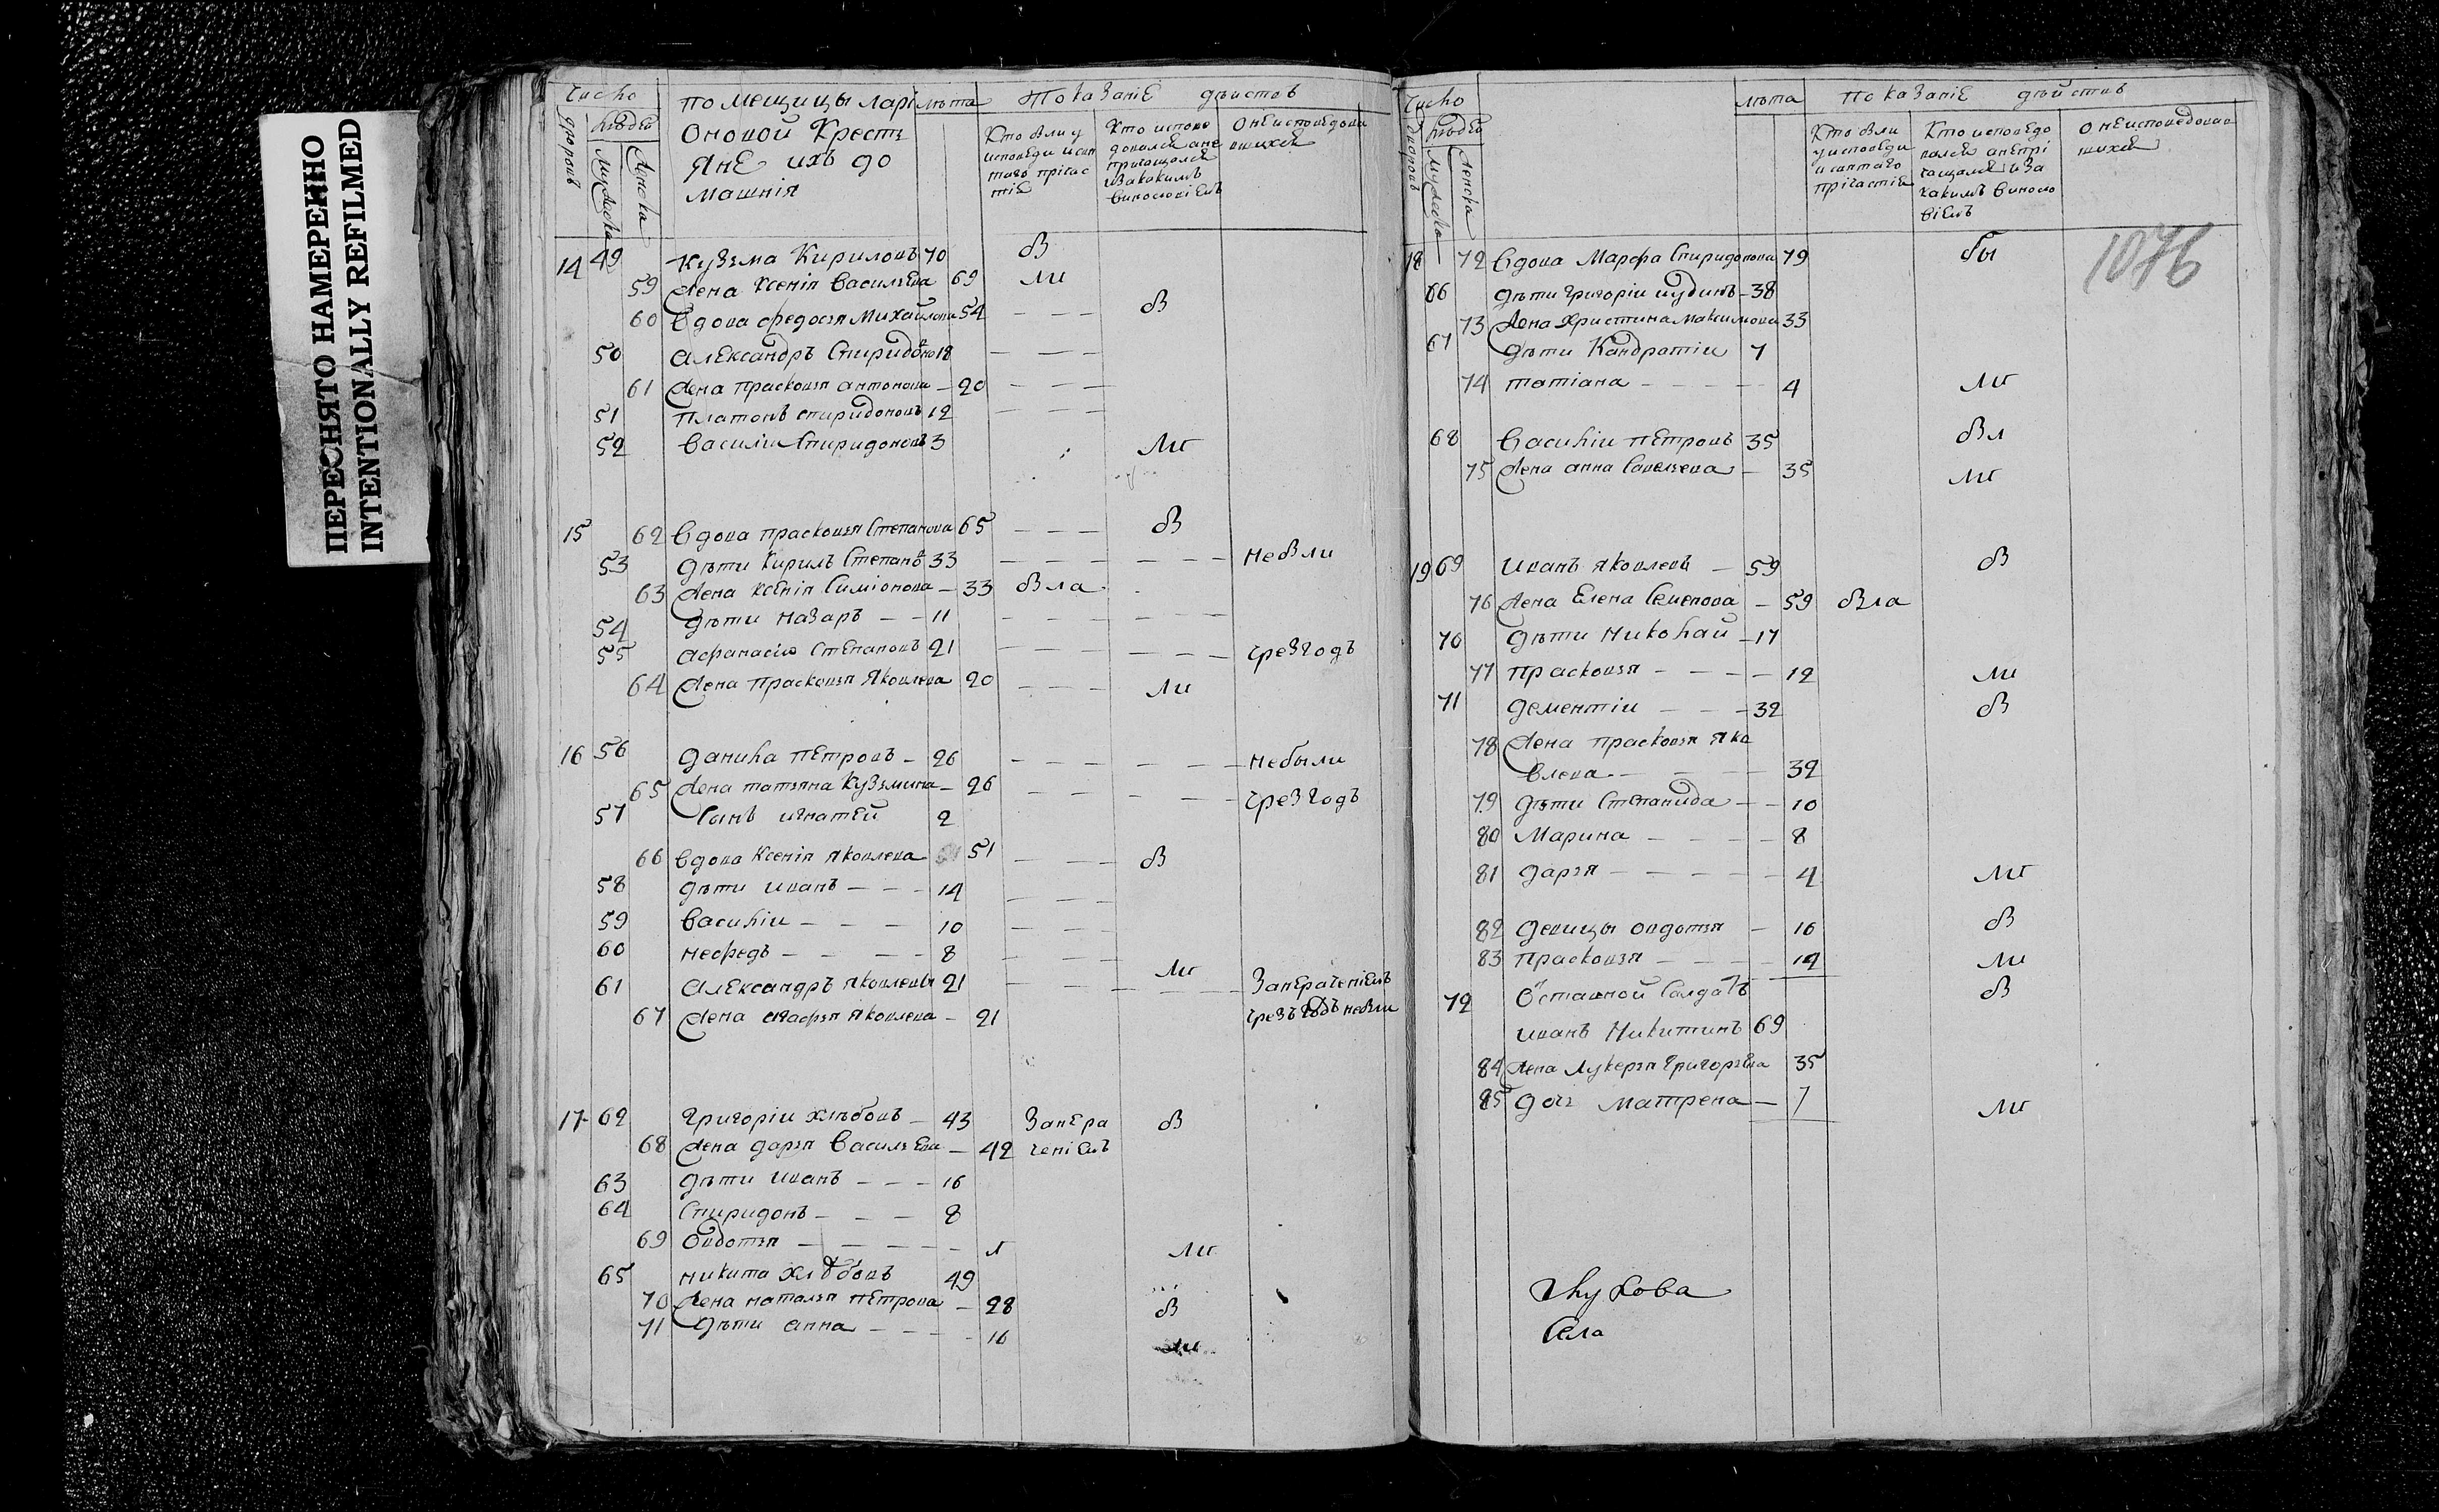 ПЕРЕСНЯТО НАМЕРЕННО
INTENTIONALLY REFILMED
число
помещицы лари
лѣта
показаніе дѣиствъ
дворовъ
людей
мужеска
женска
оновой крестъ
яне ихъ до
машнія
кто были у
исповеди и свя
таго причас
тіе
кто испове
довался а не
причащался
и за какимъ
винословіемъ
о неисповедова
вшихся
14 49 кузьма Кириловъ 70 в
59 жена ксенія васильева 69 ли
60 вдова федосья михайлова 54 — — — в
50 александръ спиридоно 18 — — —
61 жена прасковья антонова — 20 — — —
51 платонъ спиридоновъ 12 — — —
52 василіи спиридоновъ 3 ли
15 62 вдова прасковья степанова 65 — — — в
53 дѣти кирилъ степанъ 33 — — — — — — небыли
63 жена ксенія симіонова — 33 была
54 дѣти назаръ — — 11 — — — — —
55 афанасію степановъ 21 — — — — — — чрез годъ
64 жена прасковья яковлева 20 — — — ли
16 56 данила петровъ — 26 — — — — — — небыли
65 жена татьяна кузьмина — 26 — — — — — чрез годъ
57 сынъ игнатей 2
66 вдова ксенія яковлева 51 — — — в
58 дѣти иванъ — — — 14 — — —
59 василіи — — — 10 — — —
60 нефедъ — — — — 8 — — —
ли
61 александръ яковлевъ 21 — — — — — запераченіемъ
67 жена агафья яковлева — 21 чрезъ годъ небыли
17 62 григоріи хлѣбовъ — 43 запера в
68 жена дарья васильева — 42 ченіемъ
63 дѣти иванъ — — — 16
64 спиридонъ — — — 8
69 овдотья — — — — —
ли
65 никита хлѣбовъ 49
70 жена наталья петрова — 28 в
71 дѣти анна — — — 16
ли
число
лѣта
показаніе дѣйствъ
дворовъ
людей
мужеско
женска
кто были
у исповеди
и святаго
причастіе
кто исповедо
вался а не при
чащался и за
какимъ виносло
віемъ
о неисповедовав
шихся
1076
18 72 вдова марфа спиридонова 79 бы
66 дѣти григоріи иудинъ — 38
73 жена христина максимова 33
67 дѣти кандратіи 7
74 татіана — — — — 4 ли
68 василіи петровъ 35 был
75 жена анна савельева — 35 ли
19 69 иванъ яковлевъ — 59 в
76 жена елена семенова — 59 была
70 дѣти николай — 17
77 прасковья — — — — 12 ли
71 дементіи — — — 32 в
78 жена прасковья яко
влева — — — 32
79 дѣти степанида — — 10
80 марина — — — — 8
81 дарья — — — — — 4 ли
82 девицы овдотья — 16 в
83 прасковья — — — — 12 ли
72 отставной солдатъ в
иванъ никитинъ 69
84 жена лукерья григорьева 35
85 дочь матрена — 7 ли
села